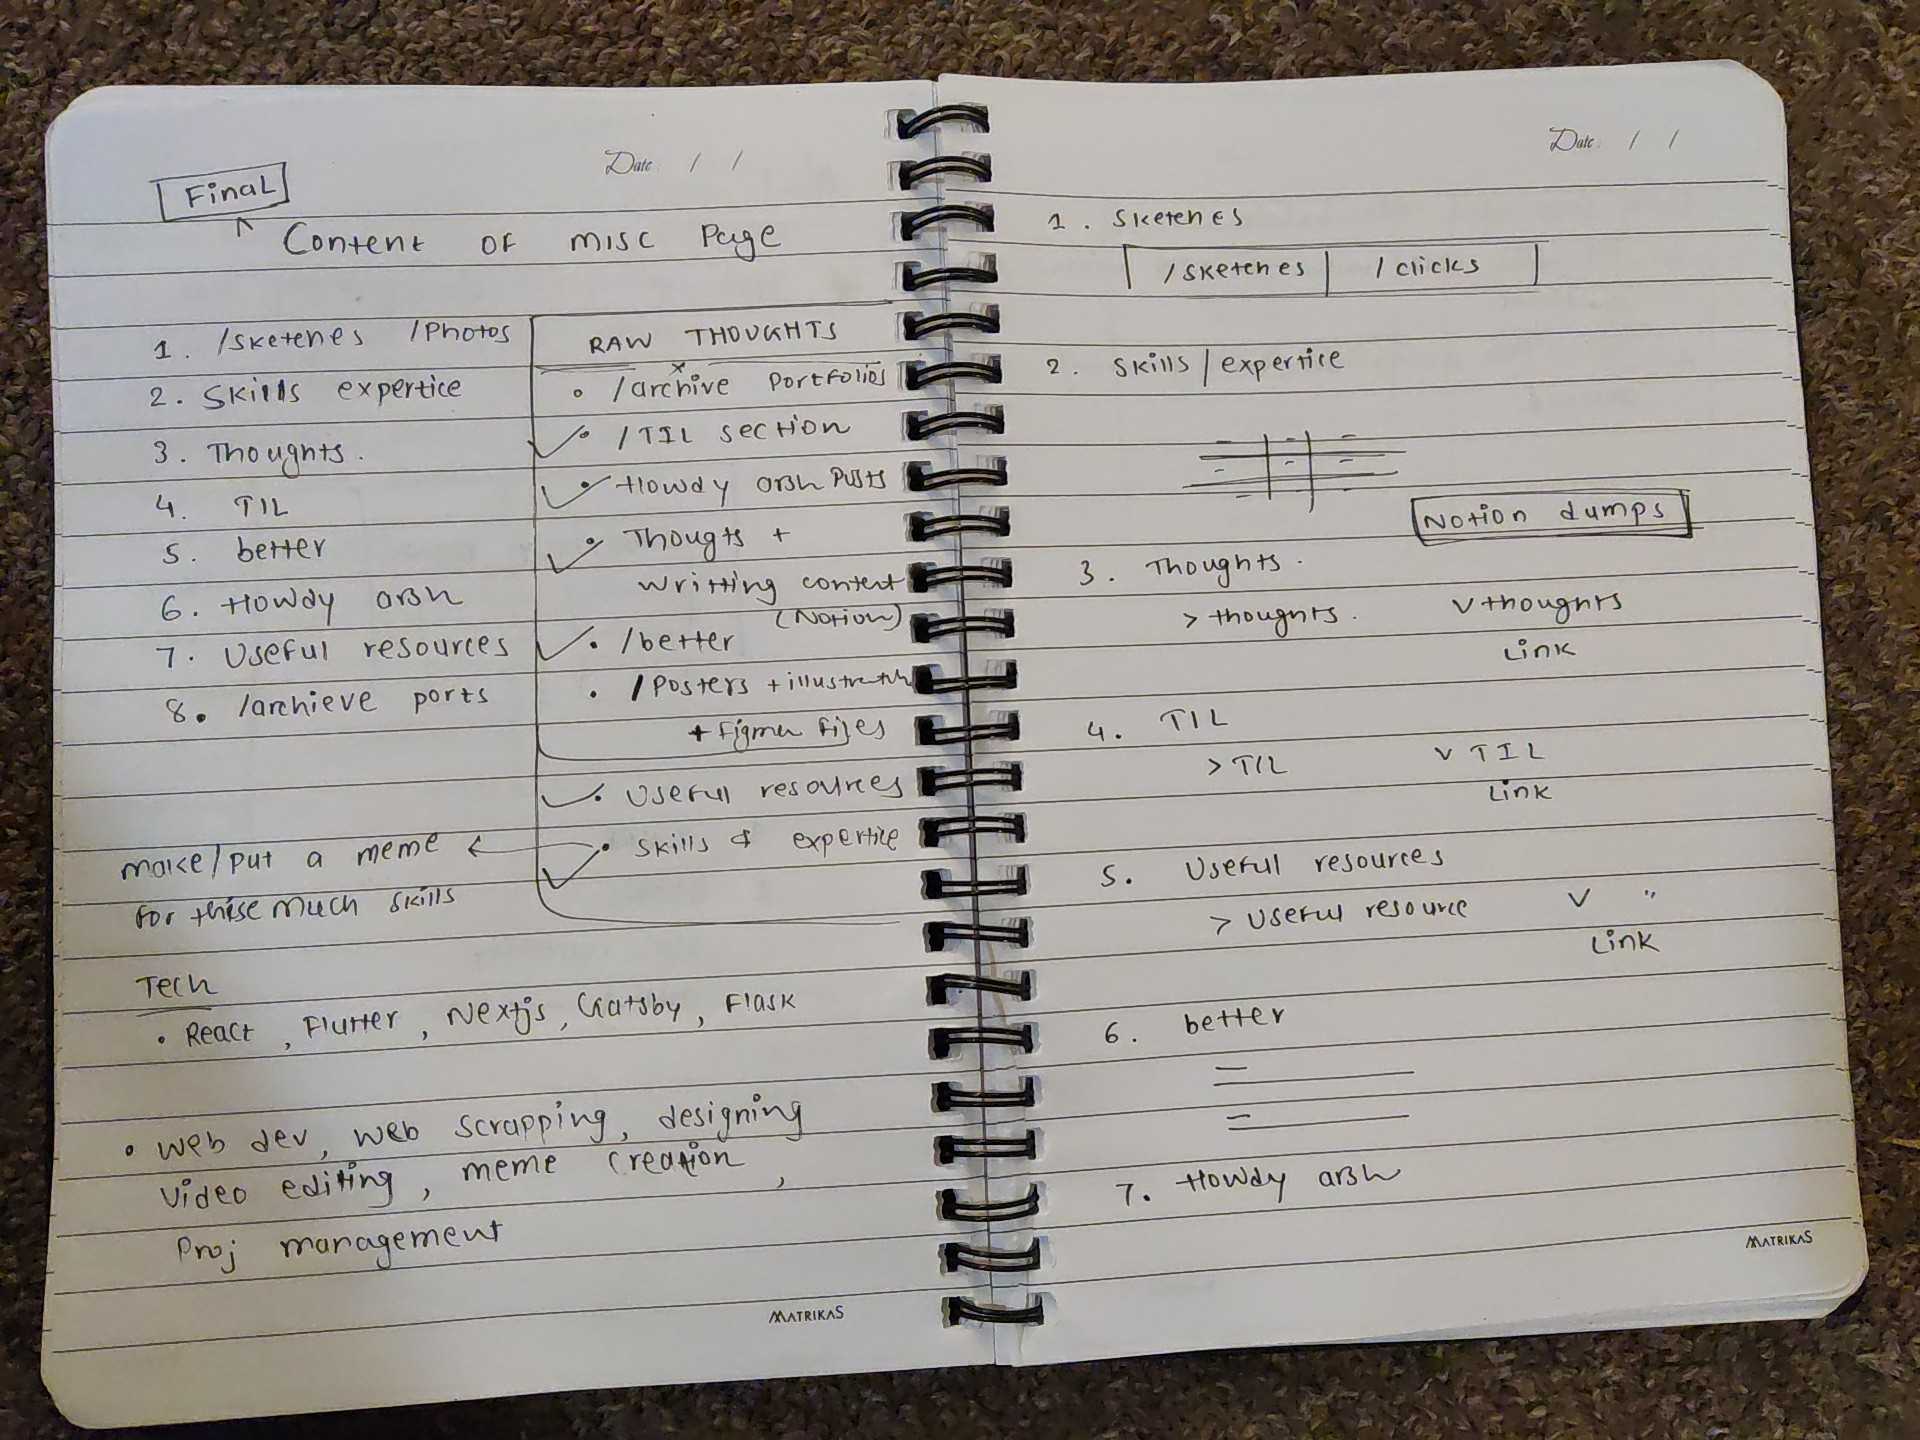 Date / /
Final
Content of misc Page
1. /sketches /Photos
2. Skills expertice
3. Thoughts.
4. TIL
5. better
6. Howdy arsh
7. Useful resources
8. /archieve ports
RAW THOUGHTS
• /archive Portfolios
• /TIL section
• Howdy arsh Posts
• Thougts +
writting content
(Notion)
• /better
• /Posters + illustration
+ Figma files
• Useful resources
• Skills & expertice
make/put a meme
for these much skills
Tech
• React, Flutter, Nextjs, Gatsby, Flask
• web dev, web scrapping, designing
video editing, meme creation,
Proj management
MATRIKAS
Date / /
1. Sketches
/sketches | /clicks
2. Skills/expertice
Notion dumps
3. Thoughts.
> thoughts. v thoughts
Link
4. TIL
> TIL v TIL
Link
5. Useful resources
> Useful resource v "
Link
6. better
7. Howdy arsh
MATRIKAS